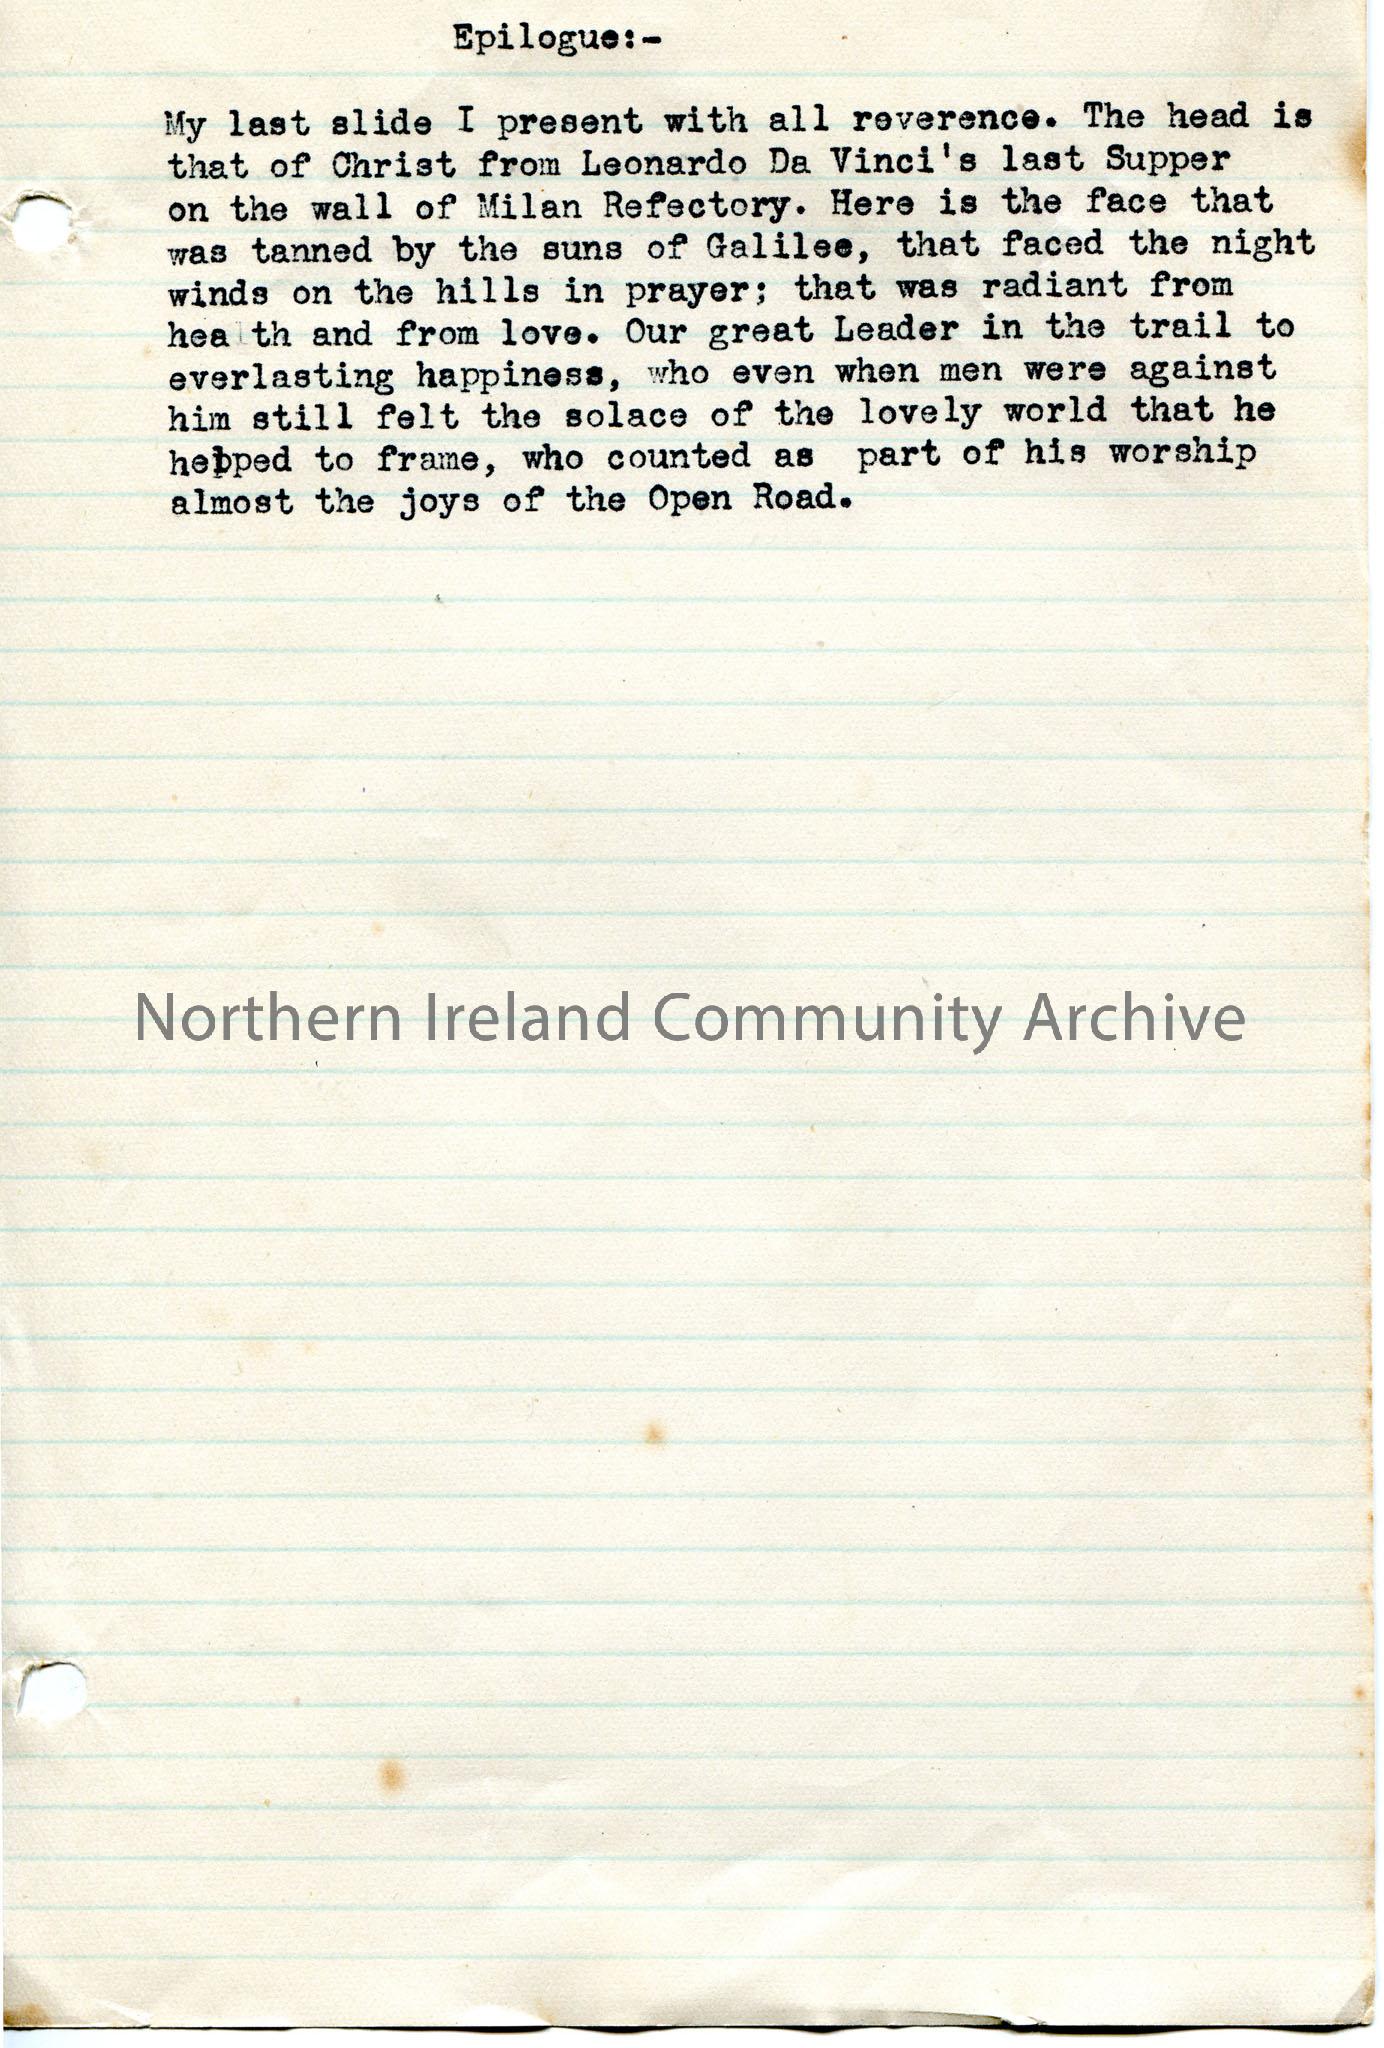 Epilogue:-
My last slide I present with all reverence. The head is
that of Christ from Leonardo Da Vinci's last Supper
on the wall of Milan Refectory. Here is the face that
was tanned by the suns of Galilee, that faced the night
winds on the hills in prayer; that was radiant from
health and from love. Our great Leader in the trail to
everlasting happiness, who even when men were against
him still felt the solace of the lovely world that he
helpped to frame, who counted as part of his worship
almost the joys of the Open Road.
Northern Ireland Community Archive